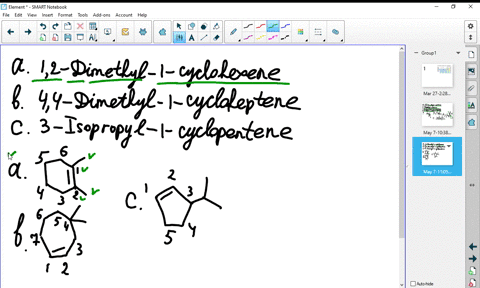 Element * - SMART Notebook
File Edit View Insert Format Tools Add-ons Help
Group1
Mar 27-2:28...
May 7-10:38...
May 7-11:09...
a. 1,2-Dimethyl-1-cyclohexene
b. 4,4-Dimethyl-1-cycloheptene
c. 3-Isopropyl-1-cyclopentene
a. 5 6 1 2 3 4
b. 6 5 4 7 3 1 2
c. 1 2 3 4 5
Auto-hide